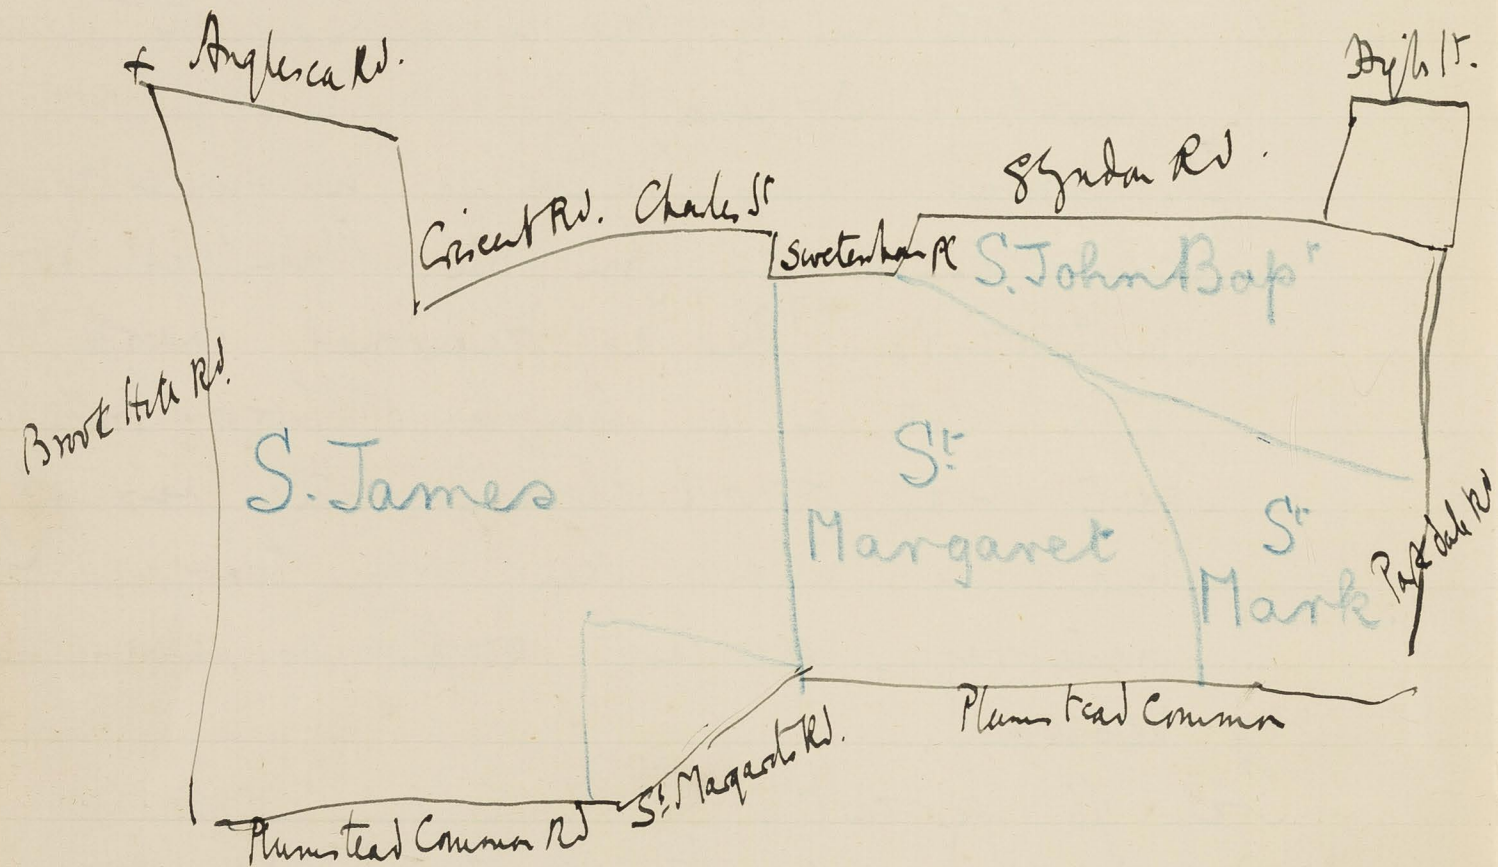 + Anglesea Rd.
High St.
Glyndon Rd.
Crescent Rd. Charles St
Swetenham Pl
S. John Bapt
Brook Hill Rd.
S. James
St.
Margaret
St
Mark
Park dale Rd
Plumstead Common
St. Margarets Rd.
Plumstead Common Rd